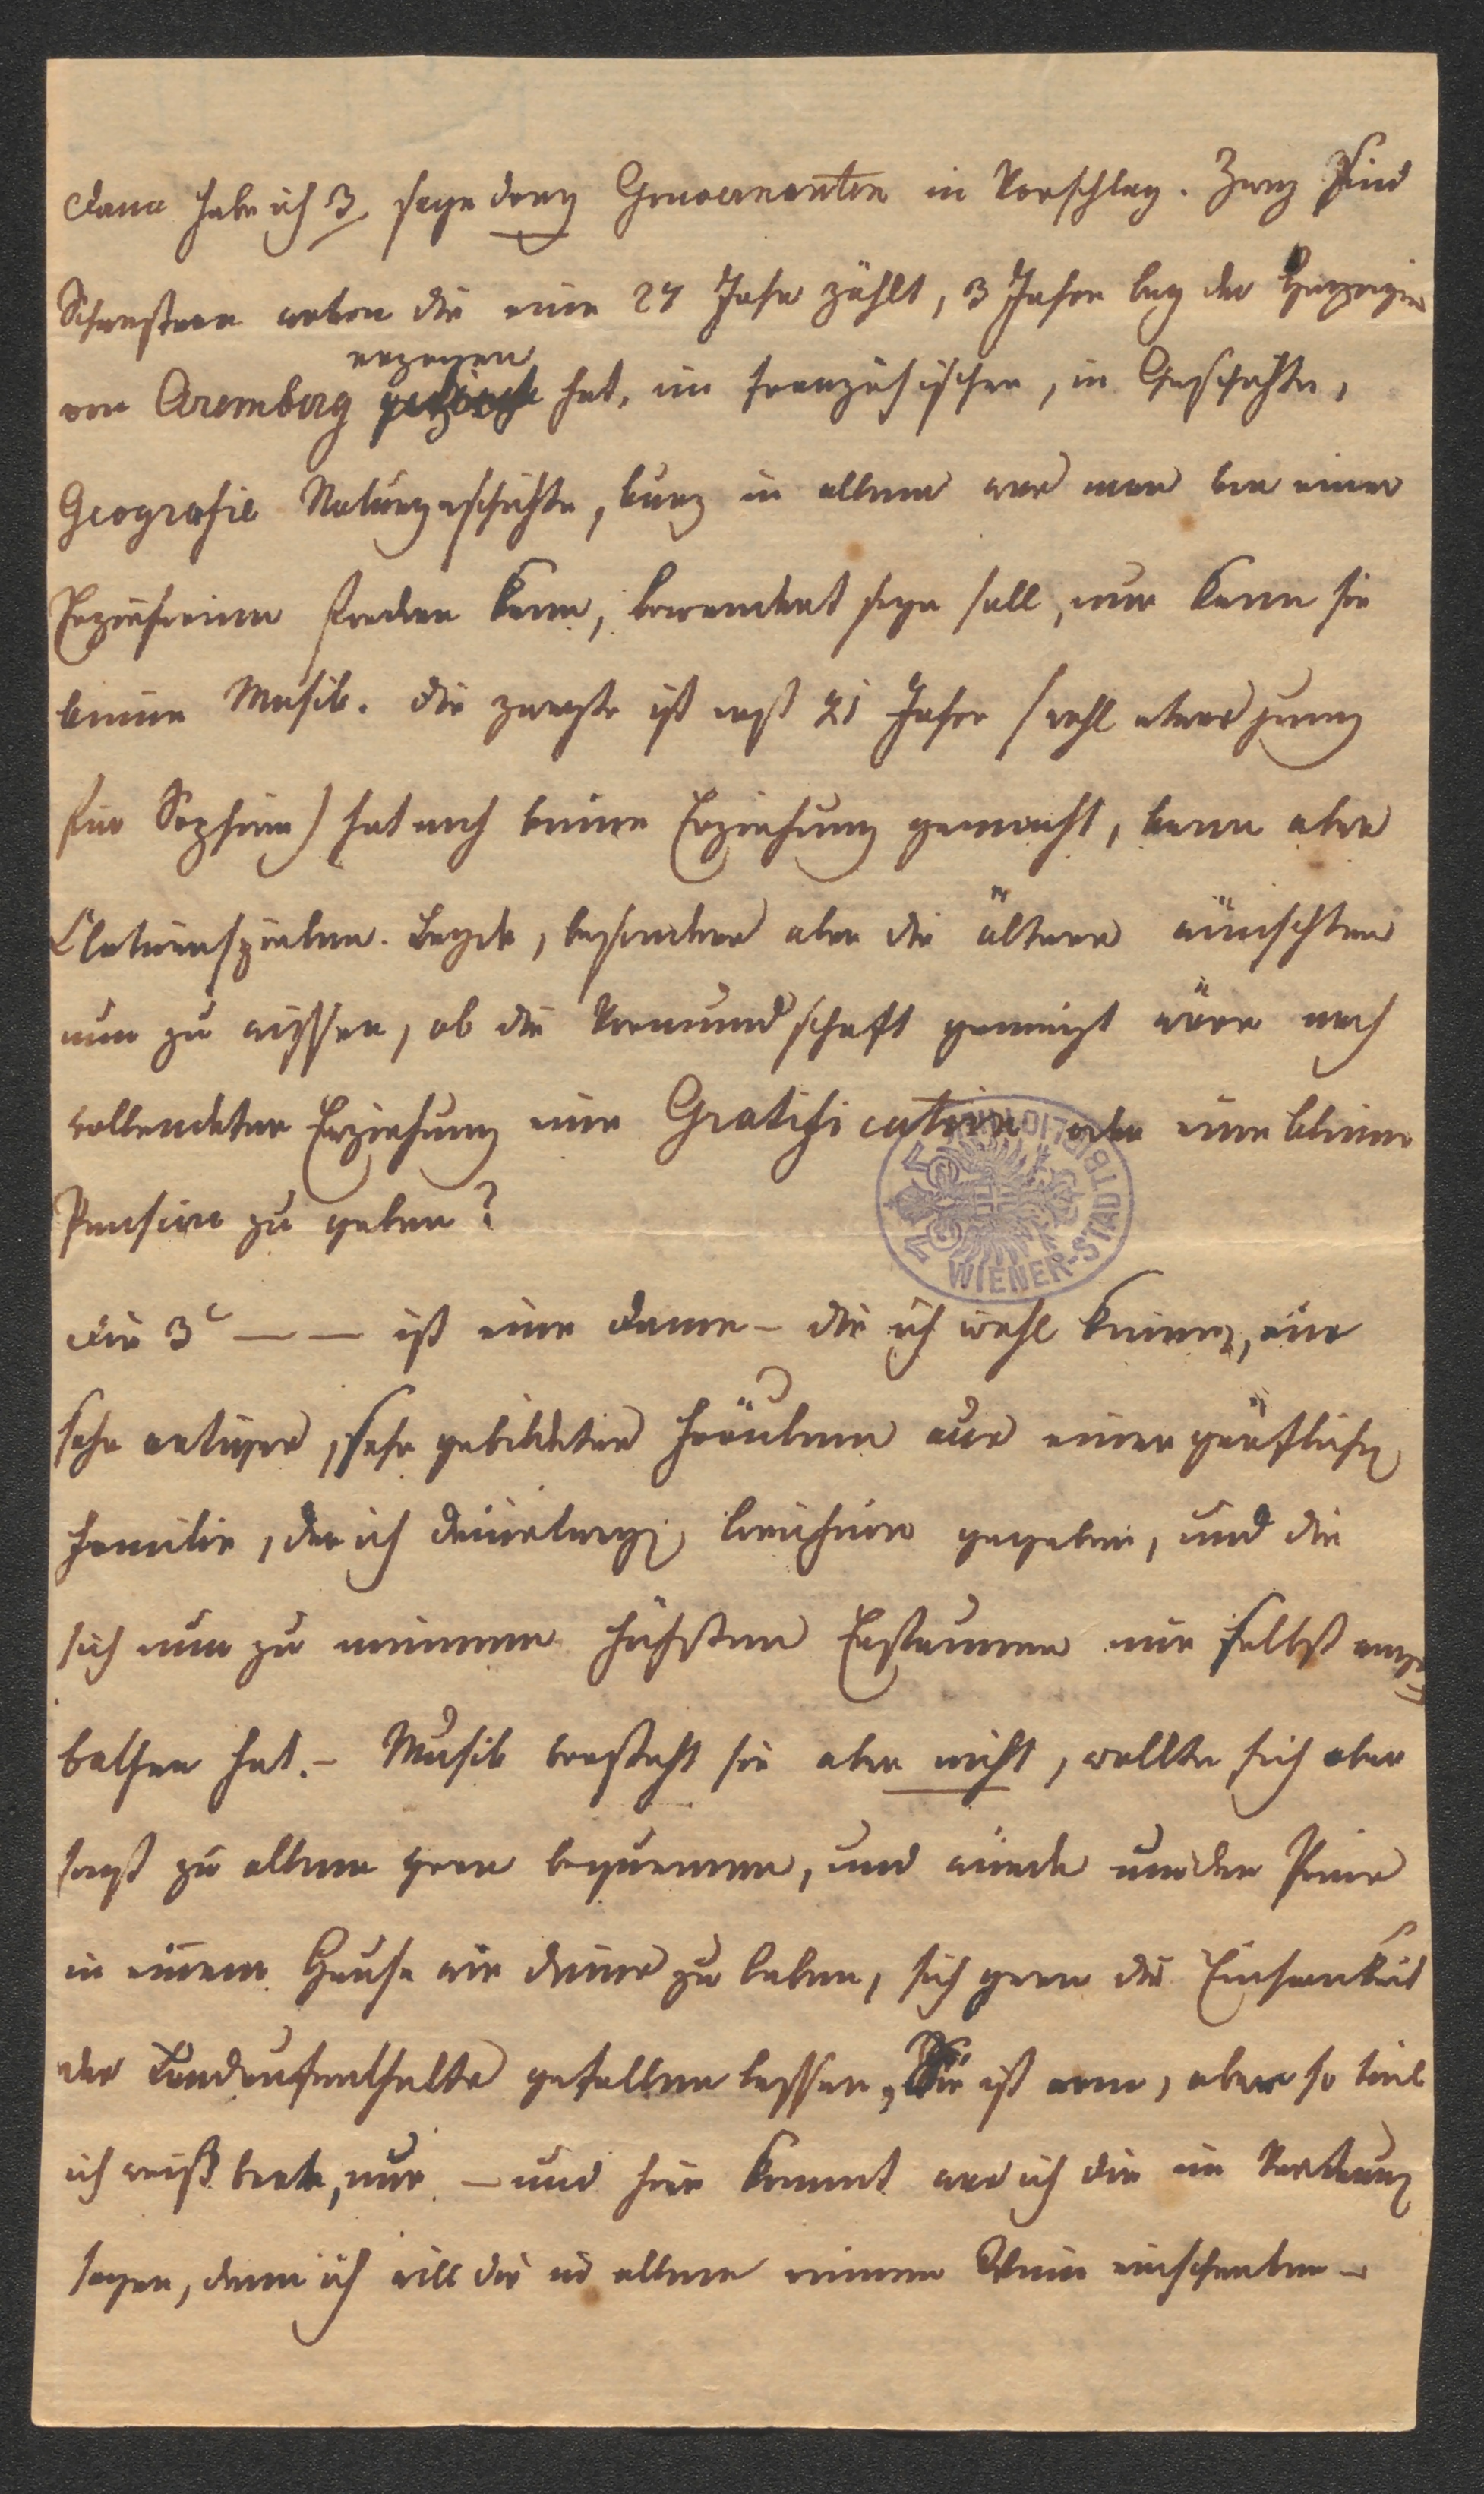 Dann habe ich 3, sage drey Gouvernanten in Vorschlag. Zwey sind
Schwestern wovon die eine 24 Jahr zählt, 3 Jahre bey der Herzogin
erzogen
von Aremberg hat, im französischen, in Geschichte,
Geografie Naturgeschichte, kurz in allem was man von einer
Erzieherinn fordern kann, bewandert seyn soll, nur kann sie
keine Musik. die zweyte ist erst 21 Jahre (wohl etwas jung
für Sophien) hat noch keine Erziehung gemacht, kann aber
Clavierspielen. Beyde, besonders aber die ältere wünschten
nun zu wissen, ob die Vormundschaft geneigt wäre nach
vollendeter Erziehung eine Gratification oder eine kleine
Pension zu geben?
WIENER-STADTBIBLIOTHEK
Die 3e — — ist eine Dame – die ich wohl kenne, ein
sehr artiges, sehr gebildetes Fräulein aus einer gräflichen
Familie, der ich gegeben, und die
sich nun zu meinem höchsten Erstaunen mir selbst ange
bothen hat. – Musik versteht sie aber nicht, wollte sich aber
sonst zu allem gern bequemen, und würde um den Preis
in einem Hause wie deines zu leben, sich gern die Einsamkeit
des Landaufenthalts gefallen lassen, Sie ist arm, aber so viel
ich weiß brav, nur – und hier kommt was ich dir im Vertrauen
sagen, denn ich will dir in allem reinen Wein einschenken –